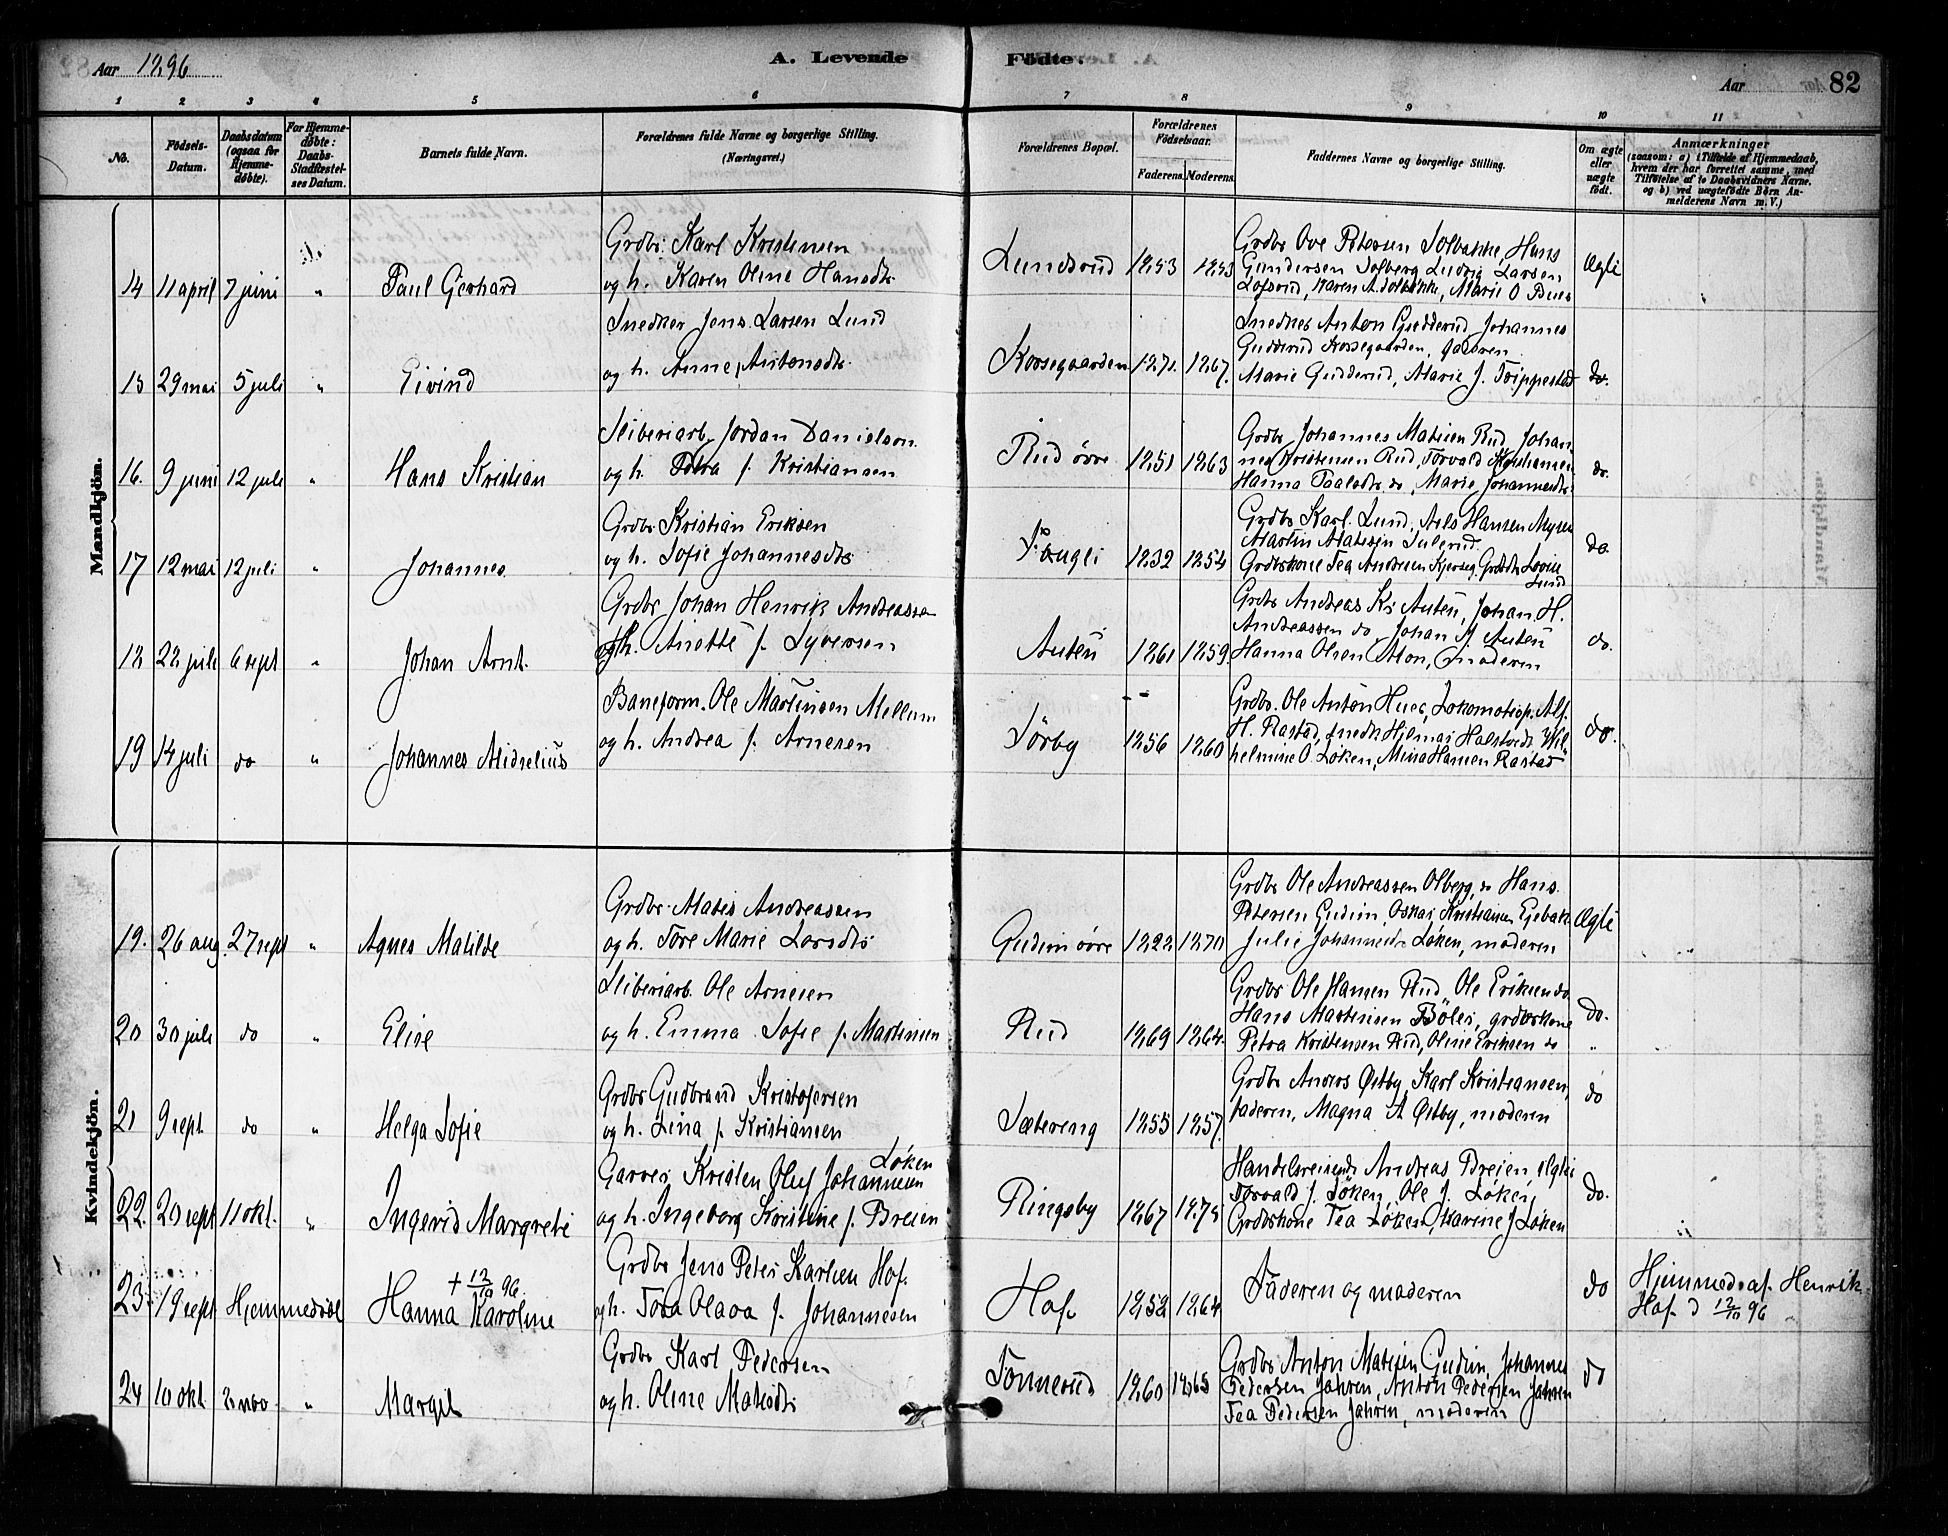 Aar 1896
A. Levende Födte.
Aar 82
1 2 3 4 5 6 7 8 9 10 11
No.
Födsels-Datum.
Daabsdatum (ogsaa for Hjemme-döbte).
For Hjemme-döbte: Daabs-Stadfæstel-ses Datum.
Barnets fulde Navn.
Forældrenes fulde Navne og borgerlige Stilling. (Næringsvei.)
Forældrenes Bopæl.
Forældrenes Födselsaar.
Faderens. Moderens.
Faddernes Navne og borgerlige Stilling.
Om ægte eller uægte födt.
Anmærkninger
(saasom: a) i Tilfælde af Hjemmedaab, hvem der har forrettet samme, med Tilföielse af to Daabsvidners Navne, og b) ved uægtefödte Börn An-melderens Navn m. V.)
Mandkjön.
14 11 april 7 juni " Paul Gerhard
Grdbr. Karl Kristensen
og h. Karen Oline Hansdtr
Lundsrud 1853 1853
Grdbr Ove Petersen Solbakke, Hans
Gundersen Solberg, Ludvig Larsen
Lofsrud, Karen A. Solbakke, Marie O
Ægte
15 29 mai 5 juli " Eivind
Snedker Jens Larsen Lund
og h. Anne Antonsdtr.
Korsegaarden 1871. 1867.
Snedker Anton Gudderud, Johannes
Gudderud Korsegaarden, faderen
Marie Gudderud, Marie J. Trippestad
do.
16. 9 juni 12 juli " Hans Kristian
Sliberiarb. Jordan Danielson
og h. Petra f. Kristiansen
Rud övre 1851 1863
Grdbr Johannes Matisen Rud, Johan
nes Kristensen Rud, Torvald Kristiansen
Hanna Paalsdtr do, Marie Johannesdtr.
do.
17 12 mai 12 juli " Johannes
Grdbr Kristian Eriksen
og h. Sofie Johannesdtr
1832 1854
Grdbr Karl Lund, Nils Hansen Mysen
Martin Matisen Sulerud.
Grdbrkone Tea Andersen Kjerseg, Grdbrdtr Lovise
Lund
do.
18 22 juli 6 sept " Johan Arnt.
Grdbr Johan Henrik Andreassen
og h. Anette f. Syversen
Auten 1861 1859.
Grdbr Andreas Kr Auten, Johan H.
Andreassen do, Johan A Auten
Hanna Olsen Mon, moderen
do.
19 14 juli do " Johannes Midselius
Baneform. Ole Martinsen Mellum
og h. Andrea f. Arnesen
Sörby 1856 1860
Grdbr. Ole Anton Hues, Lokomotivp. Alf.
H. Rastad, snedk Hjelmar Halstvedt, Wil-
helmine O. Løken, Mina Hansen Rastad
do.
Kvindekjön.
19. 26 aug. 27 sept " Agnes Matilde
Grdbr. Matis Andreassen
og h. Tore Marie Larsdtr
Gudim övre 1822 1870
Grdbr Ole Andreassen Olberg, do Hans
Petersen Gudim, Oskar Kristiansen Egebak
Julie Johannesdtr Løken, moderen
Ægte
20 30 juli do " Elise
Sliberiarb. Ole Arnesen
og h. Emma Sofie f. Martinsen
Rud 1869 1864.
Grdbr Ole Hansen Rud, Ole Eriksen do
Hans Martinsen Böler, grdbrkone
Petra Kristensen Rud, Oline Eriksen do
do.
21 9 sept. do " Helga Sofie
Grdbr Gudbrand Kristofersen
og h. Lina f. Kristiansen
Sætereng 1855 1857.
Grdbr Anders Østby, Karl Kristiansen,
faderen, Magna A Østby, moderen
do
22. 20 sept 11 okt. " Ingerid Margrete
Garver Kristen Oluf Johannesen Løken
og h. Ingeborg Kristine f. Breien
Ringsby 1867 1875
Handelsreisende Andreas Breien,
Torvald J. Løken, Ole J. Løken,
Grdbrkone Tea Løken, Karine J Løken
do.
23. 19 sept Hjemmedöbt + 12/10 96. Hanna Karoline
Grdbr Jens Peter Karlsen Hof.
og h. Tora Olava f. Johannesen
Hof 1852 1864
Faderen og moderen
do
Hjemmed. af Henrik
Hof d 12/10 96
24 10 okt 8 nov. " Margit
Grdbr Karl Pedersen
og h. Oline Matisdtr
Tonnerud 1860 1865
Grdbr Anton Matisen Gudim, Johannes
Pedersen Jahren, Anton Pedersen Jahren
Tea Pedersen Jahren, moderen
do